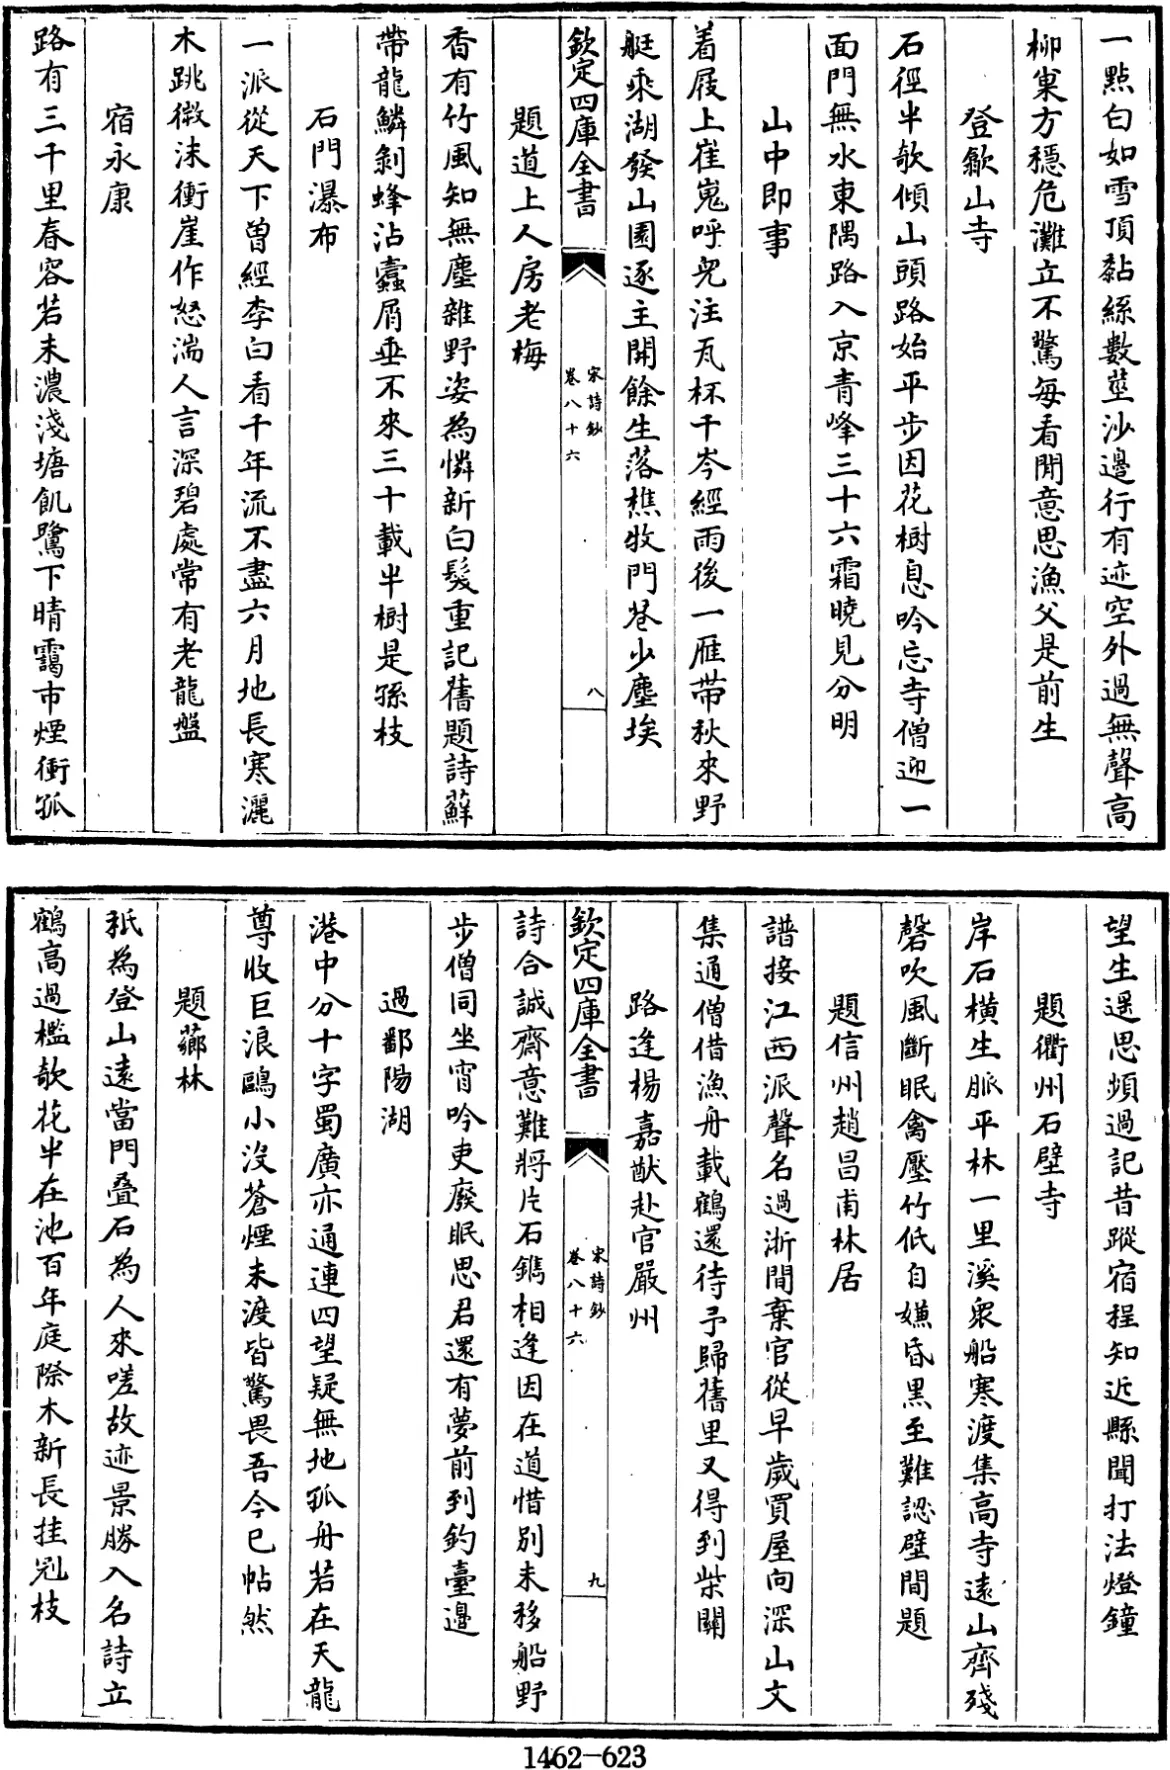 一點白如雪頂黏絲數莖沙邊行有迹空外過無聲高
柳巢方穩危灘立不驚每看閒意思漁父是前生
登歙山寺
石徑半欹傾山頭路始平步因花樹息吟忘寺僧迎一
面門無水東隅路入京青峰三十六霜曉見分明
山中即事
着屐上崔嵬呼兒注瓦杯千岑經雨後一雁帶秋來野
艇乘湖發山園逐主開餘生落樵牧門巷少塵埃
欽定四庫全書
宋詩鈔
卷八十六
八
題道上人房老梅
香有竹風知無塵雜野姿為憐新白髮重記舊題詩蘚
帶龍鱗剝蜂沾蠹屑垂不來三十載半樹是孫枝
石門瀑布
一派從天下曾經李白看千年流不盡六月地長寒灑
木跳微沫衝崖作怒湍人言深碧處常有老龍盤
宿永康
路有三千里春容若未濃淺塘飢鷺下晴靄市煙衝孤
望生遥思頻過記昔蹤宿程知近縣聞打法燈鐘
題衢州石壁寺
岸石橫生脈平林一里溪衆船寒渡集高寺遠山齊殘
磬吹風斷眠禽壓竹低自嫌昏黑至難認壁間題
題信州趙昌甫林居
譜接江西派聲名過浙間棄官從早歲買屋向深山文
集通僧借漁舟載鶴還待予歸舊里又得到柴關
路逢楊嘉猷赴官嚴州
詩合誠齋意難將片石鐫相逢因在道惜別未移船野
步僧同坐宵吟吏廢眠思君還有夢前到釣臺邊
過鄱陽湖
港中分十字蜀廣亦通連四望疑無地孤舟若在天龍
尊收巨浪鷗小沒蒼煙未渡皆驚畏吾今已帖然
題薌林
秖為登山遠當門叠石為人來嗟故迹景勝入名詩立
鶴高過檻欹花半在池百年庭際木新長挂冠枝
欽定四庫全書
宋詩鈔
卷八十六
九
1462-623